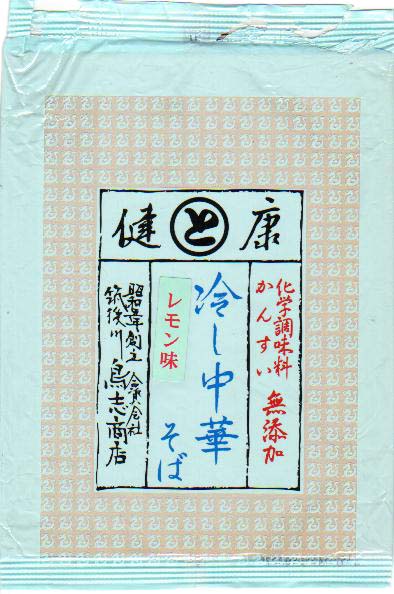 健 と 康
化学調味料
かんすい 無添加
冷し中華そば
レモン味
創立 合資会社
筑後川 鳥志商店